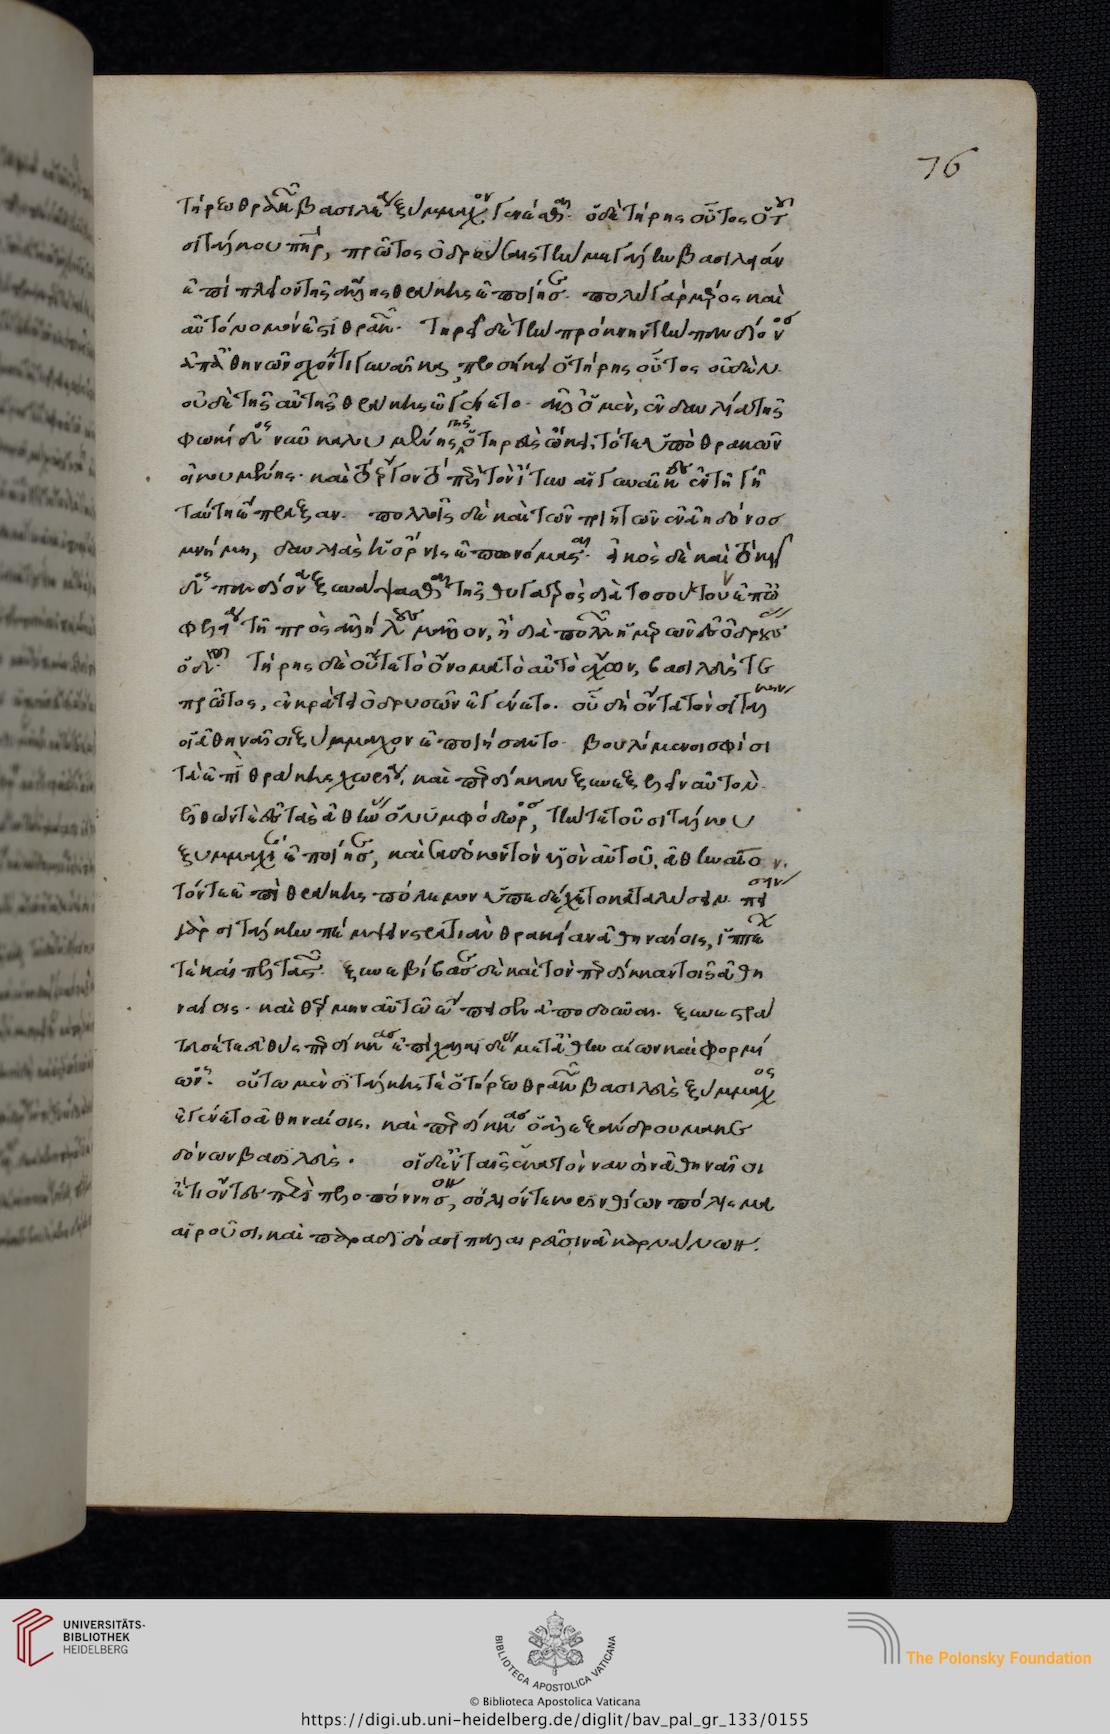 76
Τήρεω θρακῶν βασιλέα ξύμμαχον γενέσθαι. ὁ δὲ Τήρης οὗτος ὁ τοῦ
σιτάλκου πηρ, πρῶτος ὀδρύσαις τὴν μεγάλην βασιλείαν
ἐπὶ πλεῖον τῆς ἄλλης θράκης ἐποίησε. πολὺ γὰρ μέρος καὶ
αὐτόνομόν ἐστι θρακῶν. Τηρεῖ δὲ τῷ πρόκνην τὴν πανδίονος
ἀπ' ἀθηνῶν σχόντι γυναῖκα, προσήκει ὁ τήρης οὗτος οὐδέν.
οὐδὲ τῆς αὐτῆς θράκης ἐγένετο. ἀλλ' ὁ μὲν, ἐν δαυλίᾳ τῆς
φωκίδος νῦν καλουμένης γῆς ὁ τηρεὺς ᾤκει, τότε ὑπὸ θρακῶν
οἰκουμένης. καὶ τὸ ἔργον τὸ περὶ τὸν ἴτυν αἱ γυναῖκες ἐν τῇ γῇ
ταύτῃ ἔπραξαν. πολλοῖς δὲ καὶ τῶν ποιητῶν ἐν ἀηδόνος
μνήμῃ, δαυλιὰς ἡ ὄρνις ἐπωνόμασται. εἰκὸς δὲ καὶ τὸ κῆ
δος πανδίονα ξυνάψασθαι τῆς θυγατρὸς διὰ τοσούτου ἐπ' ὠ
φελείᾳ τῇ πρὸς ἀλλήλους μᾶλλον, ἢ διὰ πολλῶν ἡμερῶν ἐς ὀδρύσας
ὁδοῦ. Τήρης δὲ οὔτε τὸ ὄνομα τὸ αὐτὸ ἔχων, βασιλεὺς τε
πρῶτος, ἐν κράτει ὀδρυσῶν ἐγένετο. οὗ δὴ ὄντα τὸν σιτάλκην
οἱ ἀθηναῖοι ξύμμαχον ἐποιήσαντο. βουλόμενοι σφίσι
τὰ ἐπὶ θράκης χωρία, καὶ περδίκκαν ξυνεξελεῖν αὐτόν.
ἐλθών τε ἐς τὰς ἀθήνας ὁ νυμφόδωρος, τήν τε τοῦ σιτάλκου
ξυμμαχίαν ἐποίησε, καὶ σάδοκον τὸν υἱὸν αὐτοῦ, ἀθηναῖον.
τόν τε ἐπὶ θράκης πόλεμον ὑπεδέχετο καταλύσειν. πεί
σειν γὰρ σιτάλκην πέμπειν στρατιὰν θρακίαν ἀθηναίοις, ἱππέων
τε καὶ πελταστῶν. ξυνεβίβασε δὲ καὶ τὸν περδίκκαν τοῖς ἀθη
ναίοις. καὶ θέρμην αὐτῷ ἔπεισεν ἀποδοῦναι. ξυνεστρά
τευσέ τε εὐθὺς περδίκκας ἐπὶ χαλκιδέας μετὰ ἀθηναίων καὶ φορμί
ωνος. οὕτω μὲν σιτάλκης τε ὁ τήρεω θρακῶν βασιλεὺς ξύμμαχος
ἐγένετο ἀθηναίοις. καὶ περδίκκας ὁ ἀλεξάνδρου μακε
δόνων βασιλεύς. οἱ δ' ἐν ταῖς ἑκατὸν ναυσὶν ἀθηναῖοι
ἔτι ὄντες περὶ πελοπόννησον, σόλιόν τε κορινθίων πόλισμα
αἱροῦσι. καὶ παραδιδόασι παλαιρεῦσιν ἀκαρνάνων.
UNIVERSITÄTS-
BIBLIOTHEK
HEIDELBERG
BIBLIOTECA APOSTOLICA VATICANA
The Polonsky Foundation
© Biblioteca Apostolica Vaticana
https://digi.ub.uni-heidelberg.de/diglit/bav_pal_gr_133/0155